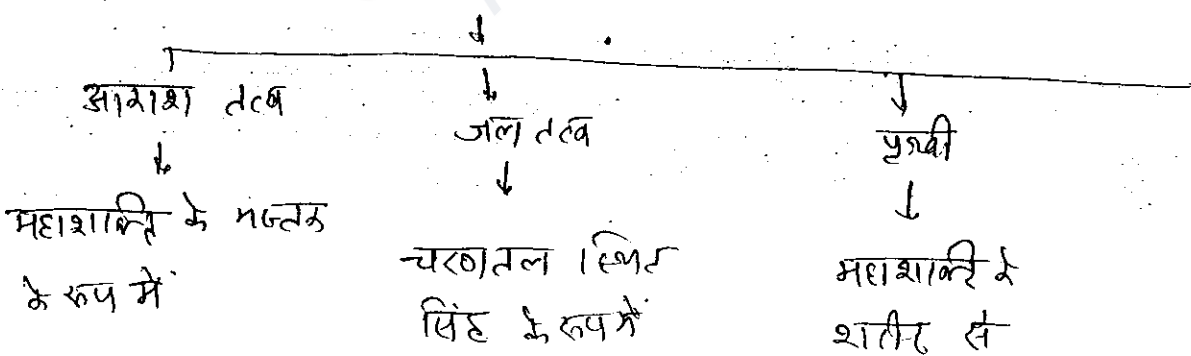 आकाश तत्व
महाशक्ति के मस्तक
के रूप में
जल तत्व
चरणतल स्थित
सिंह के रूप में
पृथ्वी
महाशक्ति के
शरीर से